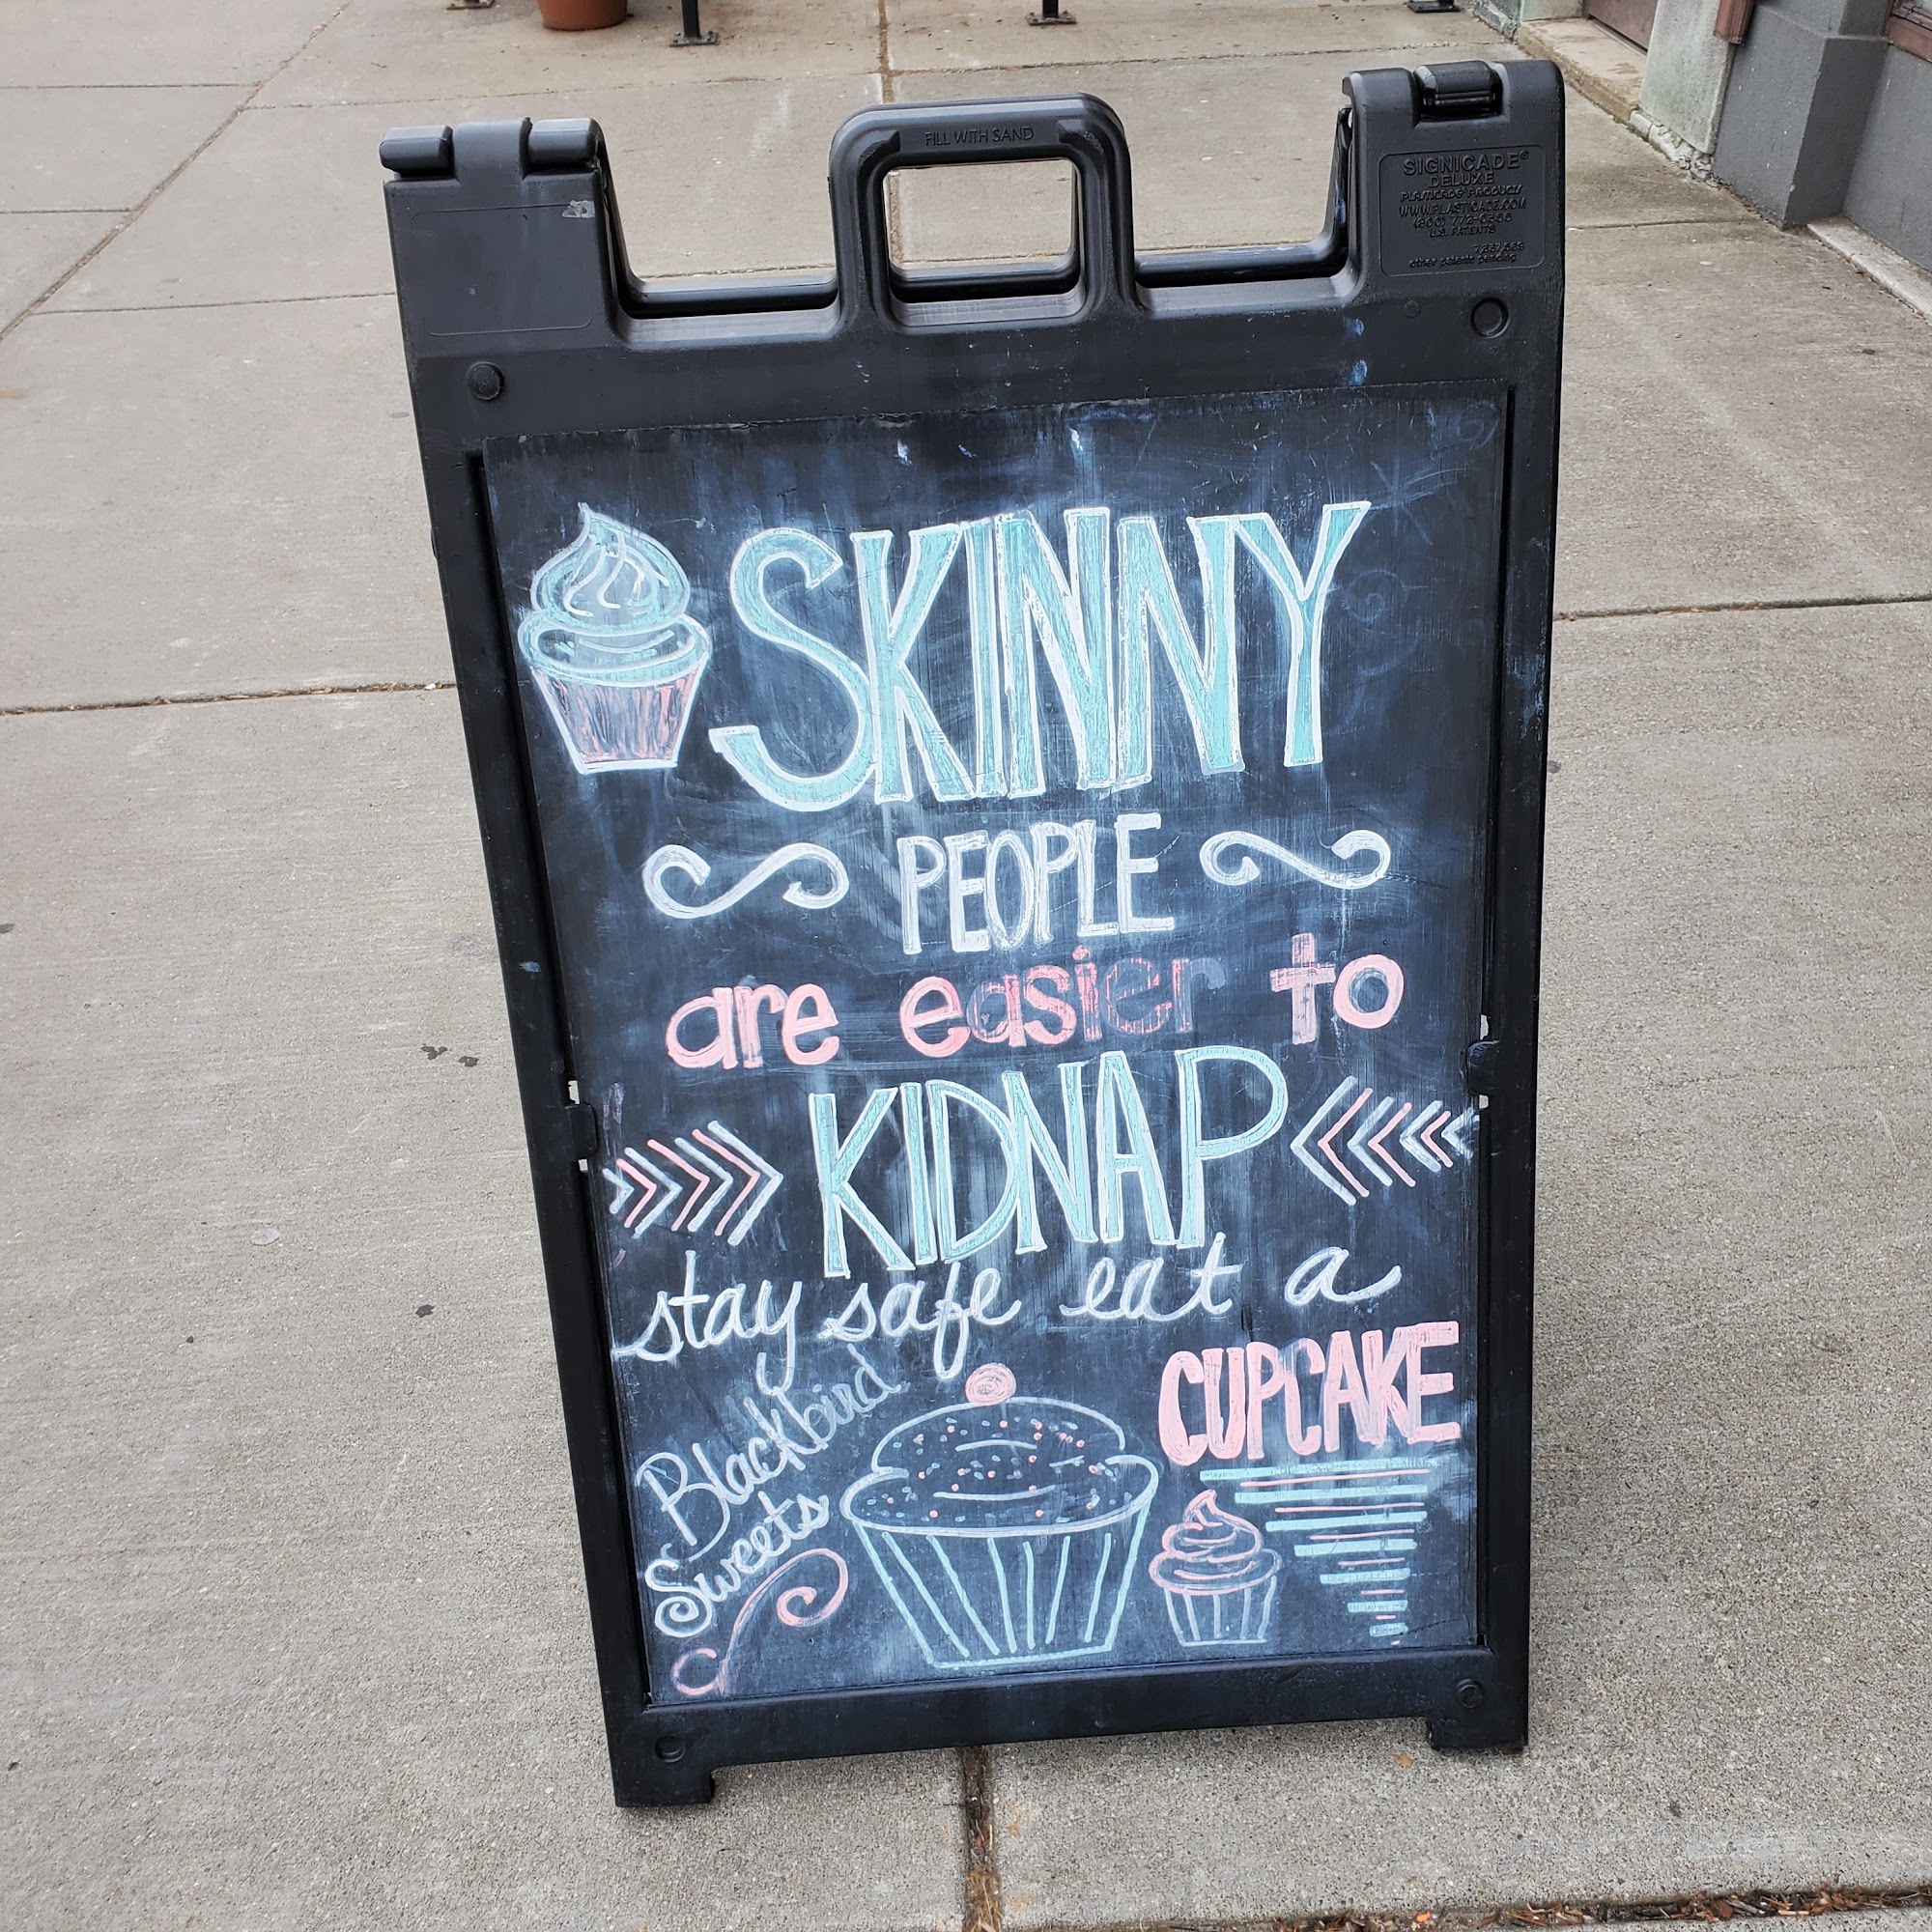 FILL WITH SAND
SIGNICADE®
DELUXE
PLASTICADE PRODUCTS
WWW.PLASTICADE.COM
(800) 772-0355
U.S. PATENTS
other patents pending
SKINNY
PEOPLE
are easier to
KIDNAP
stay safe eat a
CUPCAKE
Blackbird
Sweets